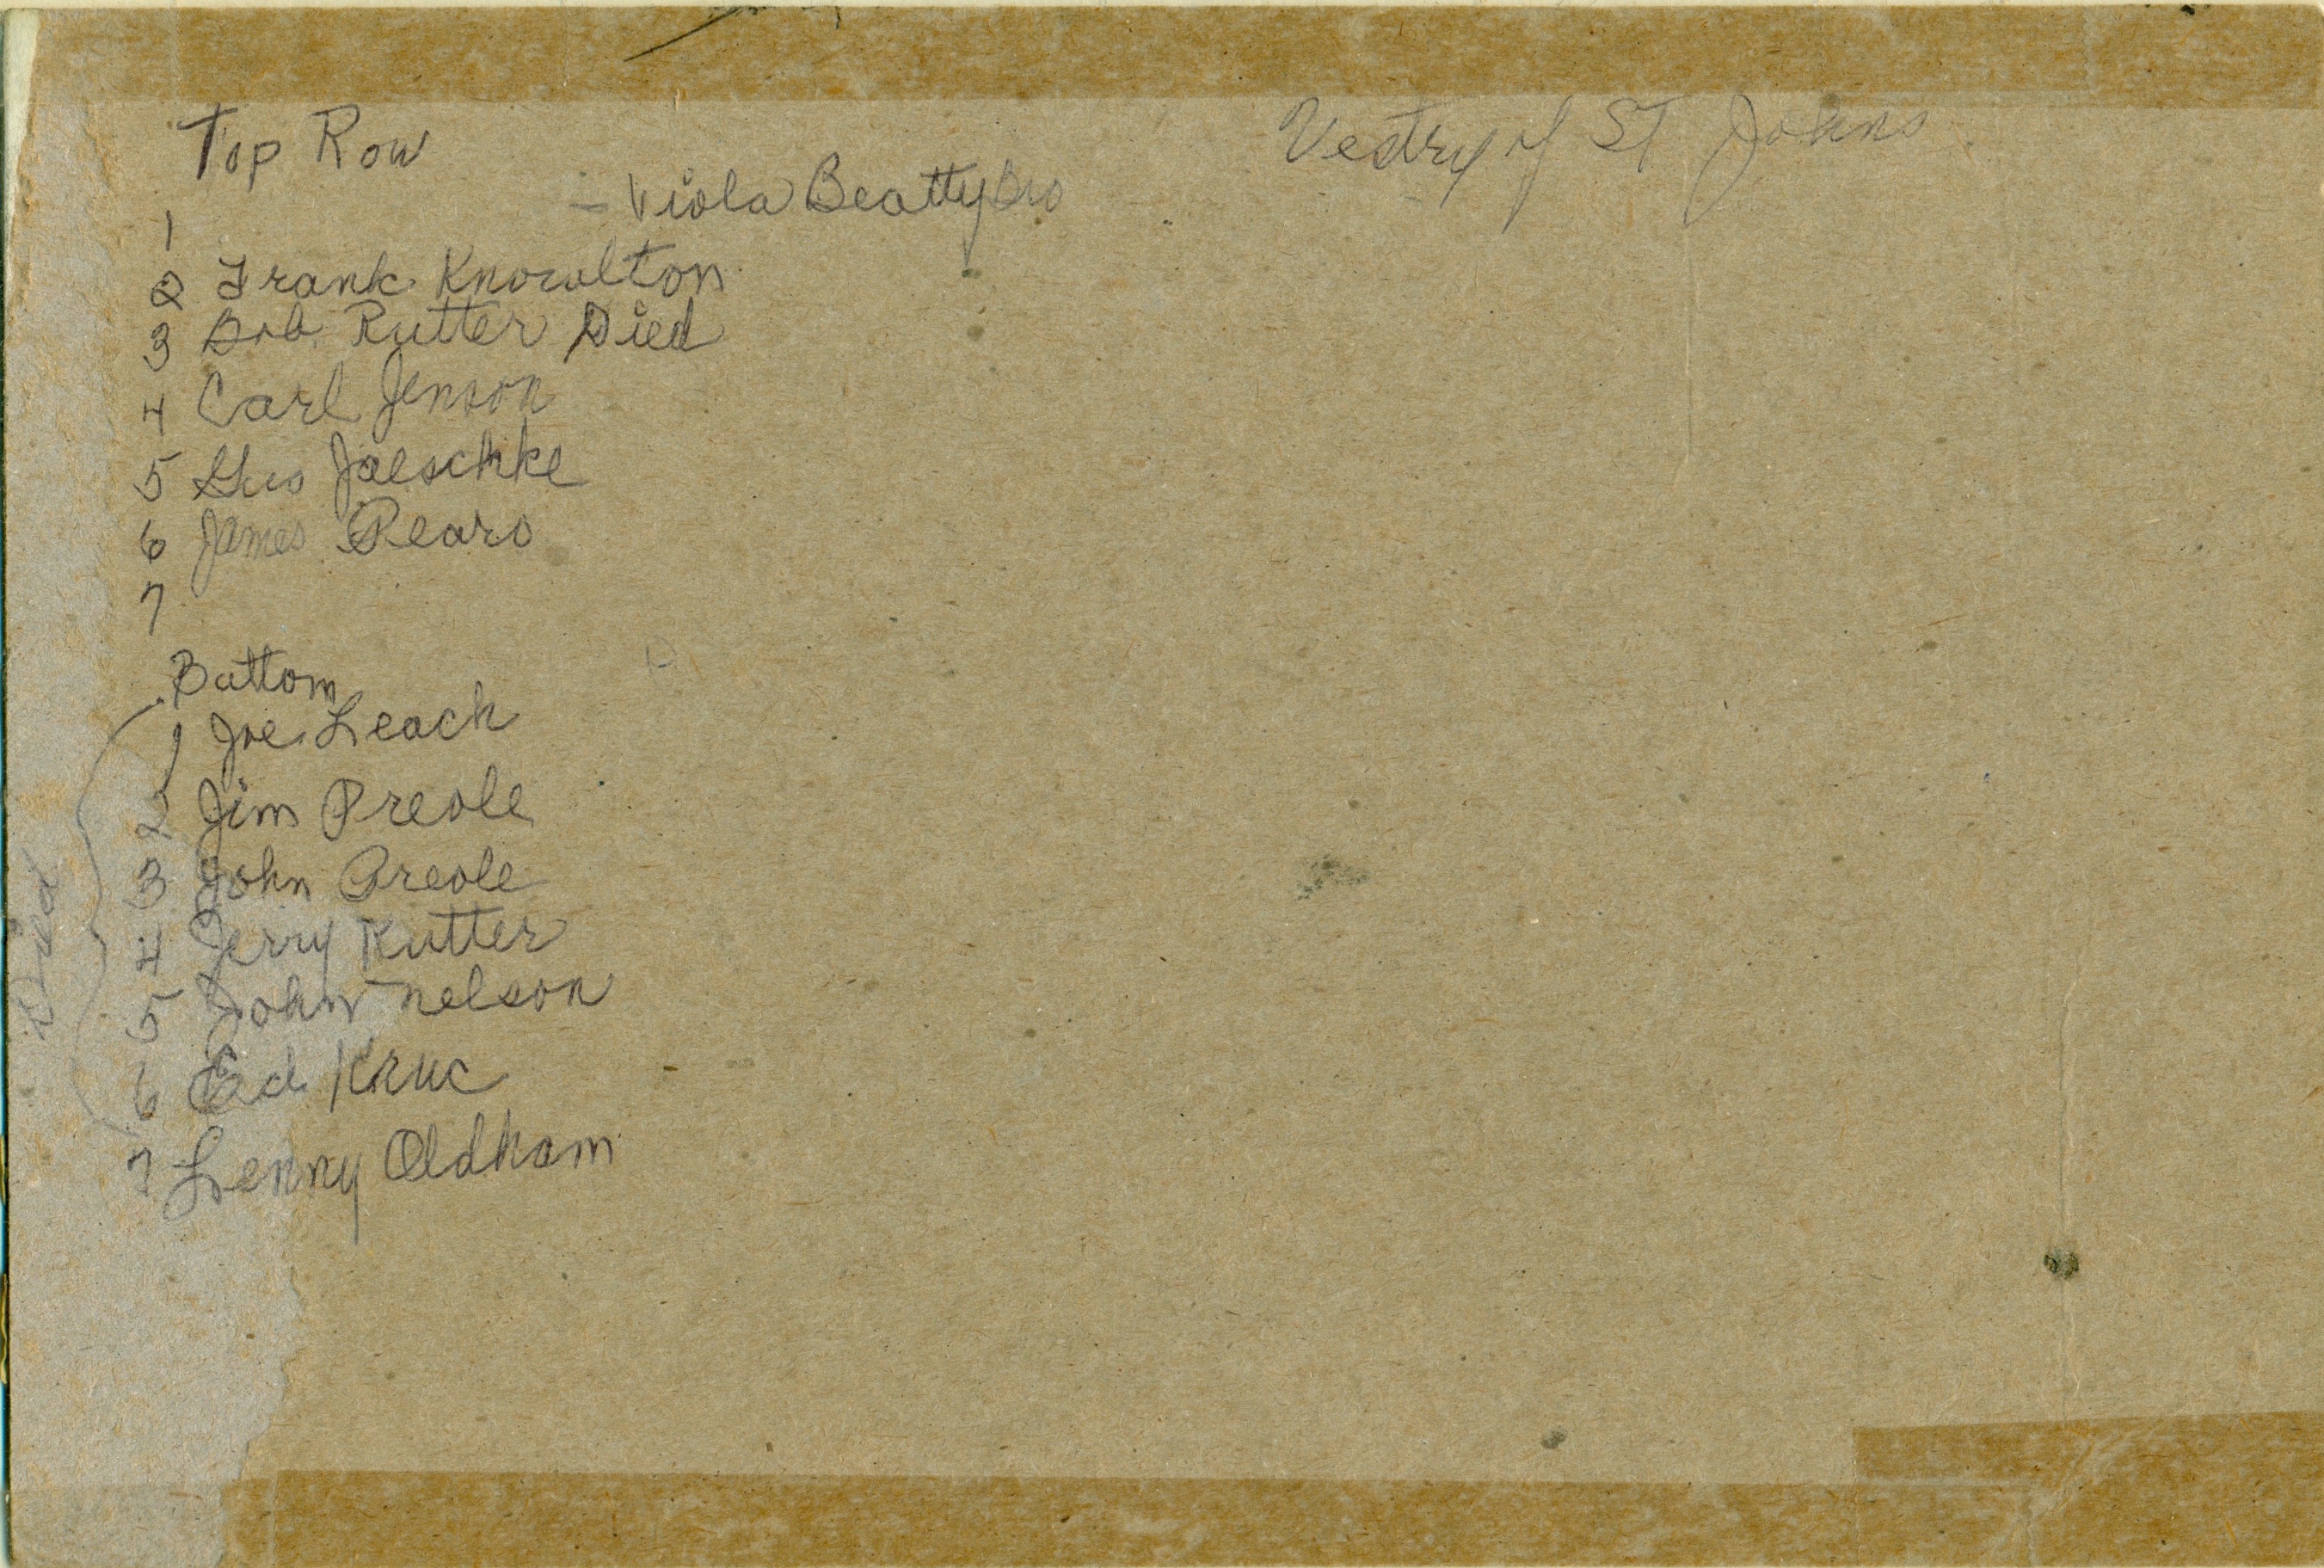 Top Row
Vestry of St Johns
1 - Viola Beatty Bro
2 Frank Knowlton
3 Bob Rutter Died
4 Carl Jenson
5 Gus Jaeschke
6 James Pears
7
Buttom
1 Joe Leach
2 Jim Preole
3 John Preole
4 Jerry Rutter
5 John Nelson
6 Ed Kruc
7 Lenny Oldham
Died